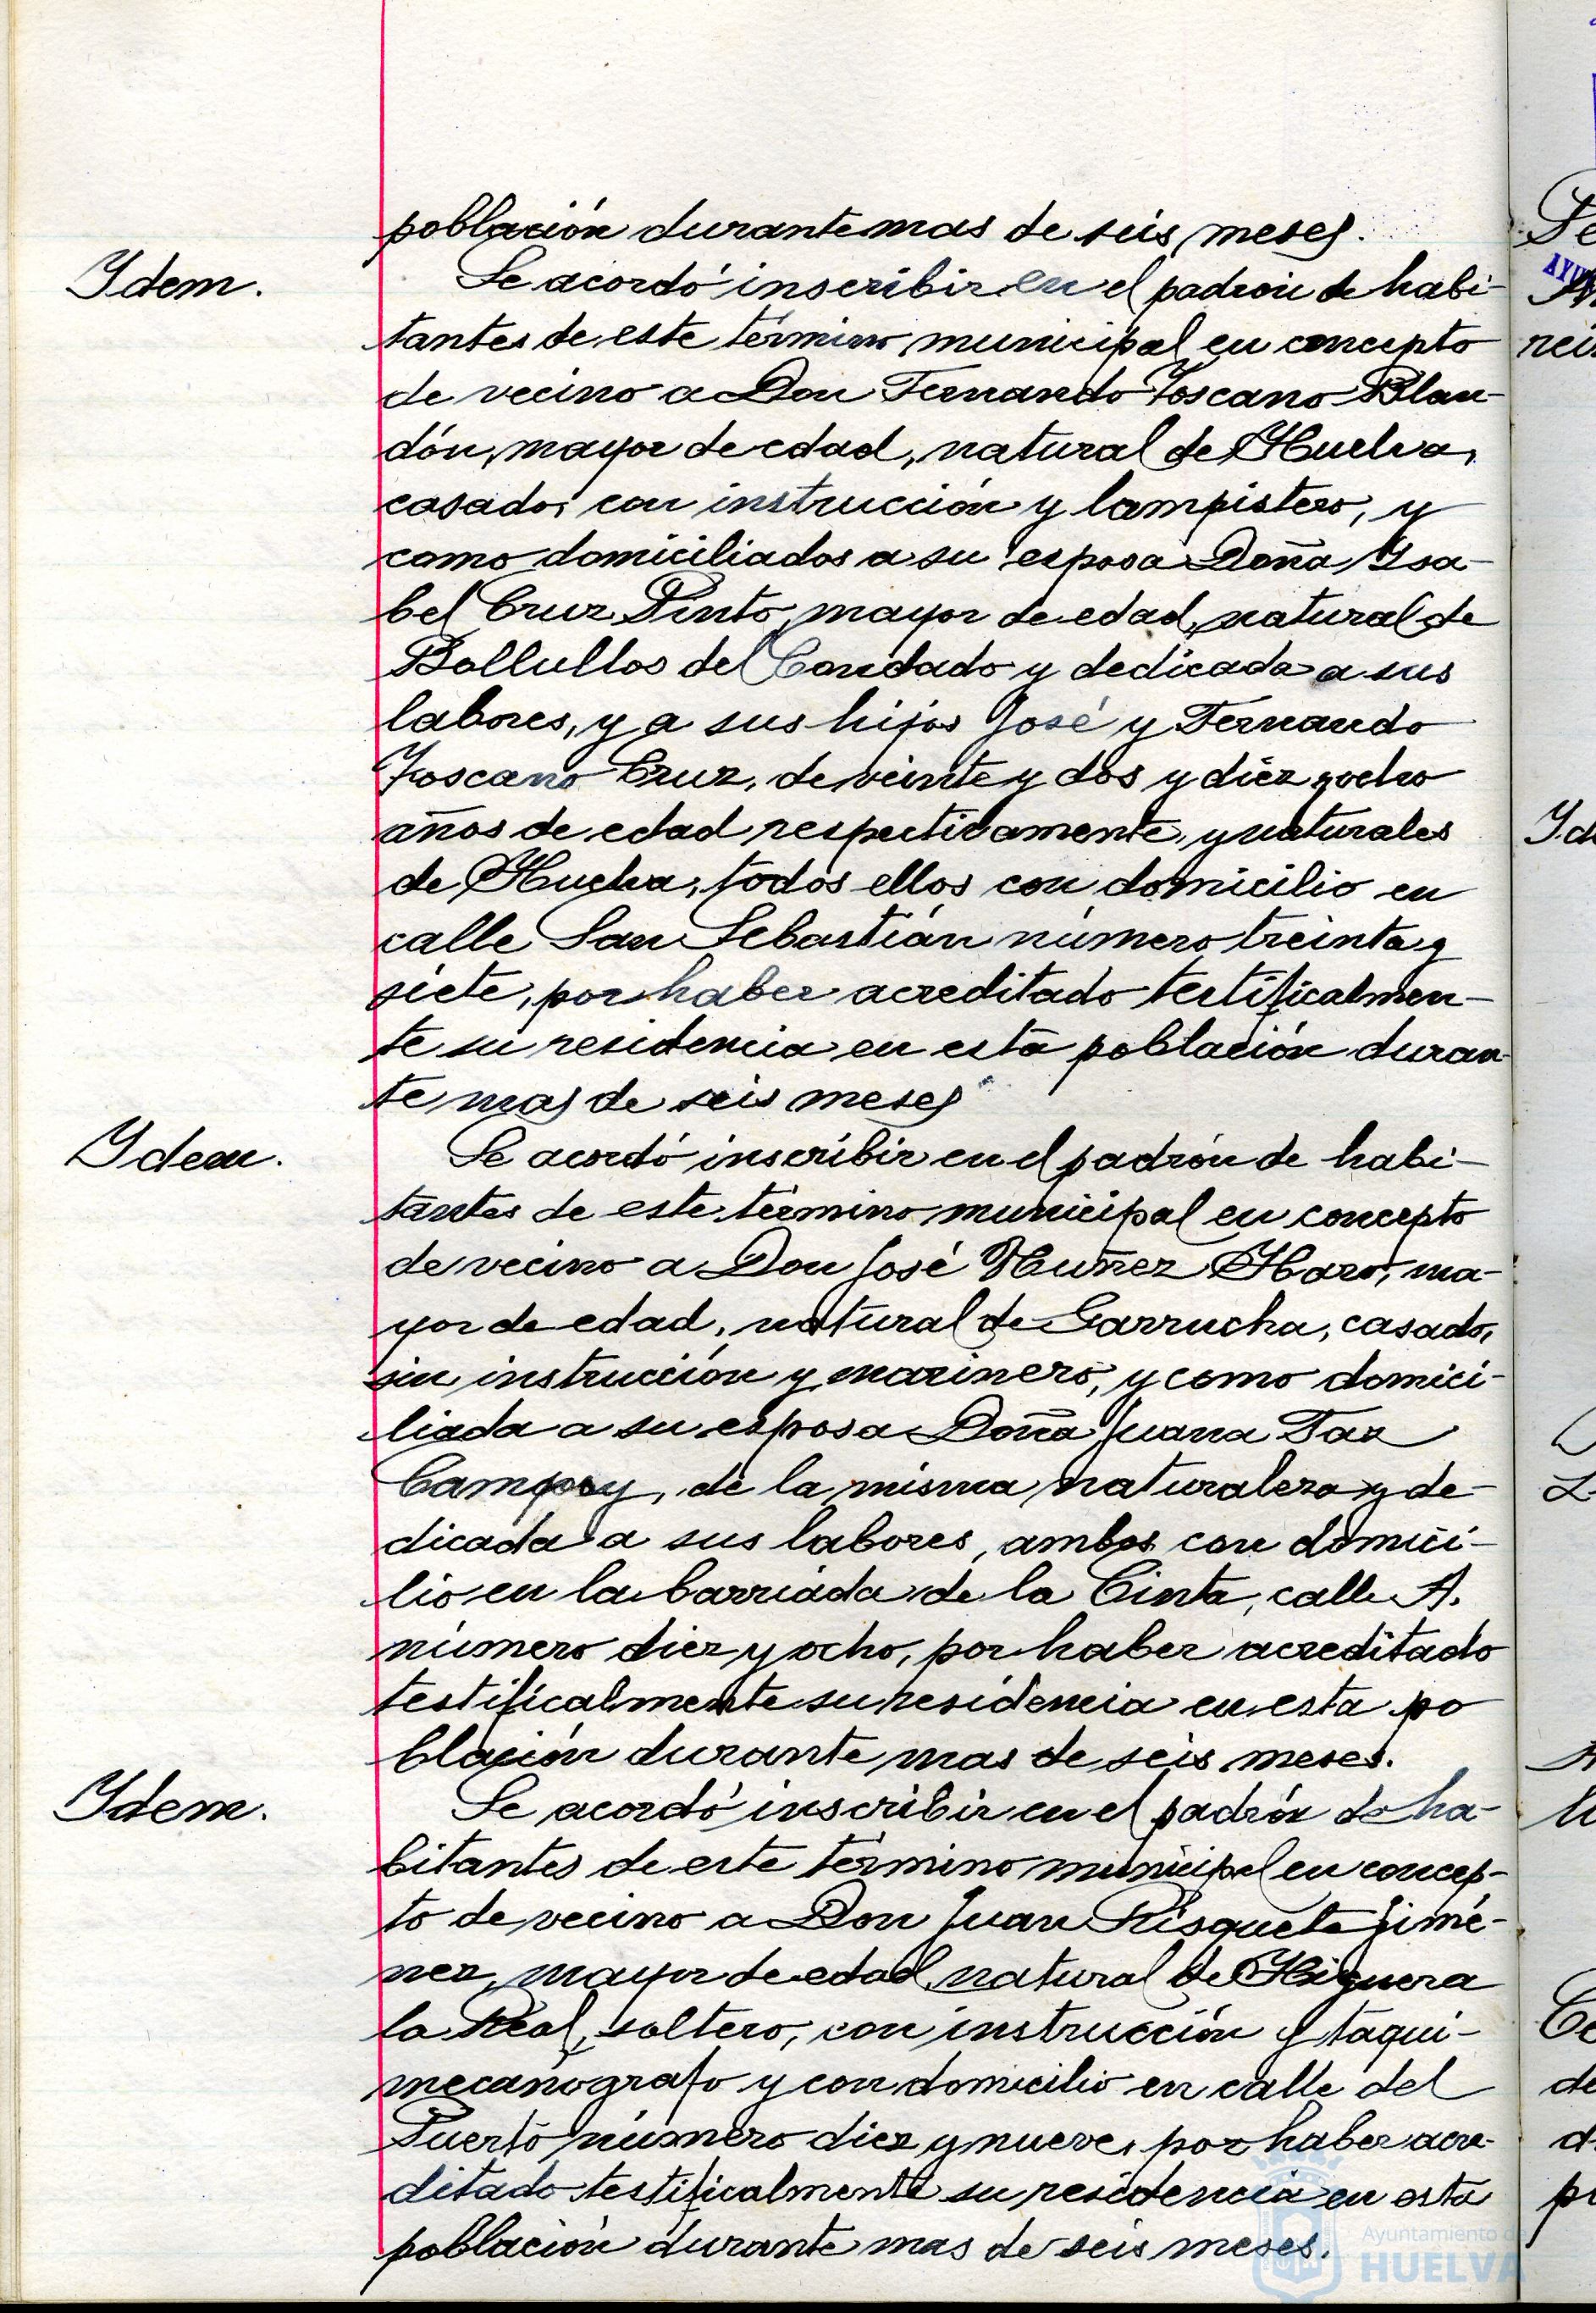 población durante mas de seis meses.
Idem.
Se acordó inscribir en el padrón de habi-
tantes de este término municipal en concepto
de vecino a Don Fernando Toscano Blan-
dón, mayor de edad, natural de Huelva,
casado, con instrucción y lampistero, y
como domiciliados a su esposa Doña Isa-
bel Cruz Pinto, mayor de edad, natural de
Bollullos del Condado y dedicada a sus
labores, y a sus hijos José y Fernando
Toscano Cruz, de veinte y dos y diez y ocho
años de edad respectivamente, y naturales
de Huelva, todos ellos con domicilio en
calle San Sebastián número treinta y
siete, por haber acreditado testificalmen-
te su residencia en esta población duran-
te mas de seis meses
Idem.
Se acordó inscribir en el padrón de habi-
tantes de este término municipal en concepto
de vecino a Don José Nuñez Haro, ma-
yor de edad, natural de Garrucha, casado,
sin instrucción y marinero, y como domici-
liada a su esposa Doña Juana
Campoy, de la misma naturaleza y de-
dicada a sus labores, ambos con domici-
lio en la barriada de la Cinta, calle A.
número diez y ocho, por haber acreditado
testificalmente su residencia en esta po
blación durante mas de seis meses.
Idem.
Se acordó inscribir en el padrón de ha-
bitantes de este término municipal en concep-
to de vecino a Don Juan Risquete Jimé-
nez, mayor de edad, natural de Higuera
la Real, soltero, con instrucción y taqui-
mecanógrafo y con domicilio en calle del
Puerto número diez y nueve, por haber acre-
ditado testificalmente su residencia en esta
población durante mas de seis meses.
Ayuntamiento de
HUELVA